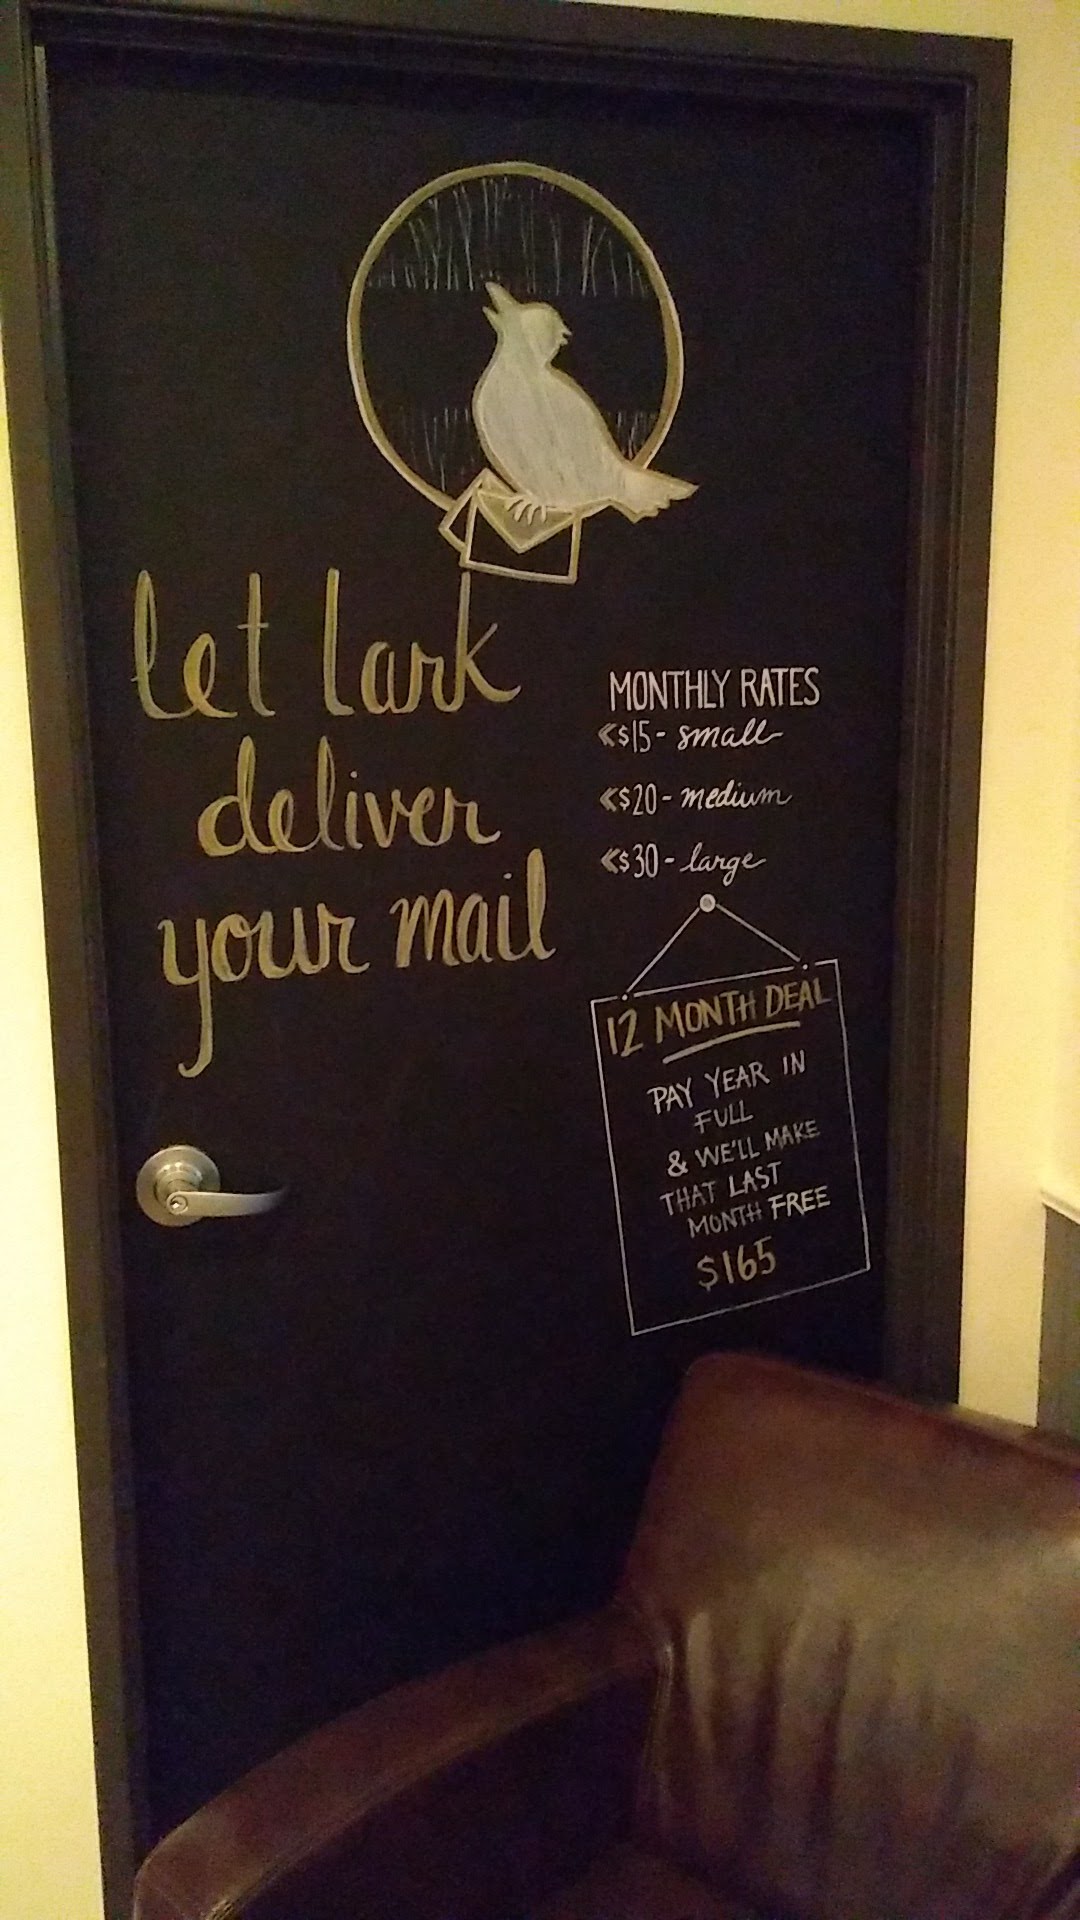 let lark
deliver
your mail
MONTHLY RATES
«$15- small
«$20- medium
«$30- large
12 MONTH DEAL
PAY YEAR IN
FULL
& WE'LL MAKE
THAT LAST
MONTH FREE
$165